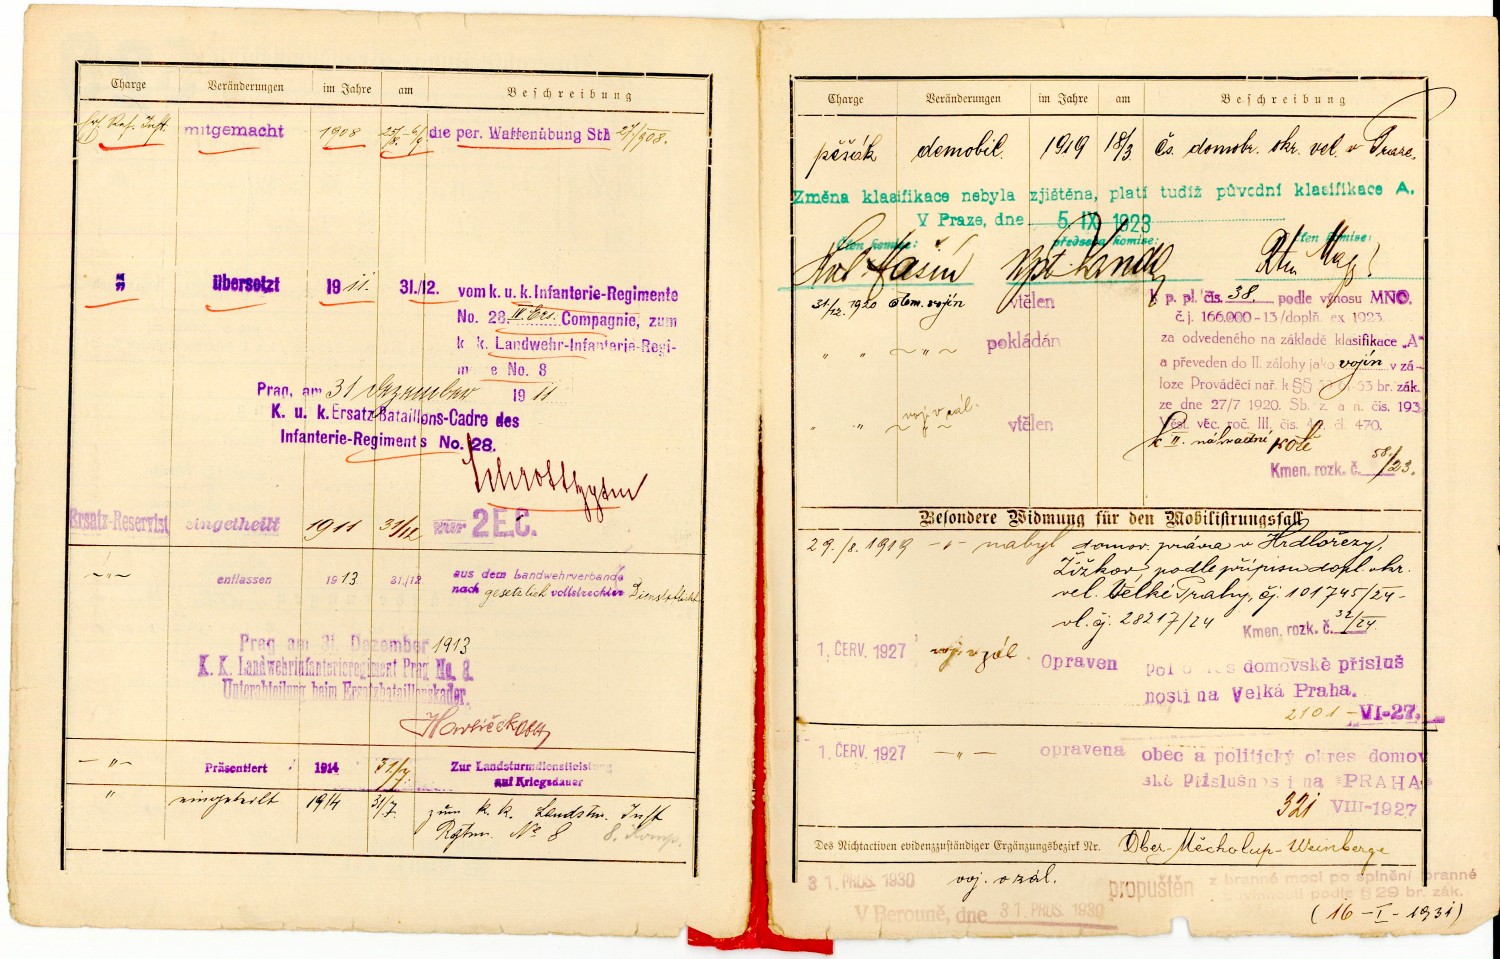 Charge Veränderungen im Jahre am Beschreibung
mitgemacht 1908 die per. Waffenübung 27/908.
übersetzt 1911. 31./12. vom k. u. k. Infanterie-Regimente
No. 28. IV Ers. Compagnie, zum
k. k. Landwehr-Infanterie-Regi-
No. 8
Prag, am 31 Dezember 1911
K. u. k. Ersatz Bataillons-Cadre des
Infanterie-Regiments No. 28.
Ersatz-Reservist eingetheilt 1911 31/12 2 E.C.
~"~ entlassen 1913 31./12. aus dem Landwehrverbande
nach gesetzlich vollstreckter Dienstpflicht
Prag am 31. Dezember 1913
K. K. Landwehrinfanterieregiment Prag No. 8.
Unterabteilung beim Ersatzbataillonskader.
—"— Präsentiert 1914 31/7. Zur Landsturmdienstleistung
auf Kriegsdauer
" eingeteilt 1914 31/7. zum k. k. Landstm. Inft
Rgtm. No 8 8. Komp.
Charge Veränderungen im Jahre am Beschreibung
pěšák demobil. 1919 18/3. čs. domobr. okr. vel. v Praze.
Změna klasifikace nebyla zjištěna, platí tudíž původní klasifikace A.
V Praze, dne 5. IX. 1923
Člen komise: předseda komise: Člen komise:
31/12. 1920 vojín vtělen k p. pl. čís. 38. podle výnosu MNO.
č. j. 166.000-13/doplň. ex 1923.
" " ~"~ pokládán za odvedeného na základě klasifikace „A"
a převeden do II. zálohy jako vojín v zá-
loze Prováděcí nař. k §§ br. zák.
ze dne 27/7 1920. Sb. z. a n. čís. 193
voj. v zál.
" " vtělen Věst. věc. roč. III. čís. čl. 470.
k II. náhradní rotě
Kmen. rozk. č. 58/23.
Besondere Widmung für den Mobilisirungsfall
29./8. 1919 -"- nabyl domov. práva v Hrdlořezy,
Žižkov, podle přípisu dopl. okr.
vel. Velké Prahy, čj. 101745/24-
vl. čj. 28217/24
Kmen. rozk. č. 32/24.
1. ČERV. 1927 voj. v zál. Opraven domovské přísluš
nosti na Velká Praha.
2101 - VI-27.
1. ČERV. 1927 —"— opravena obec a politický okres domov
ské příslušnosti na "PRAHA"
321 VIII-1927
Des Nichtactiven evidenzzuständiger Ergänzungsbezirk Nr. Ober-Měcholup-Weinberge
31. PROS. 1930 voj. v zál. propuštěn z branné moci po splnění branné
povinnosti podle § 29 br. zák.
V Berouně, dne 31. PROS. 1930
(16 - I - 1931)